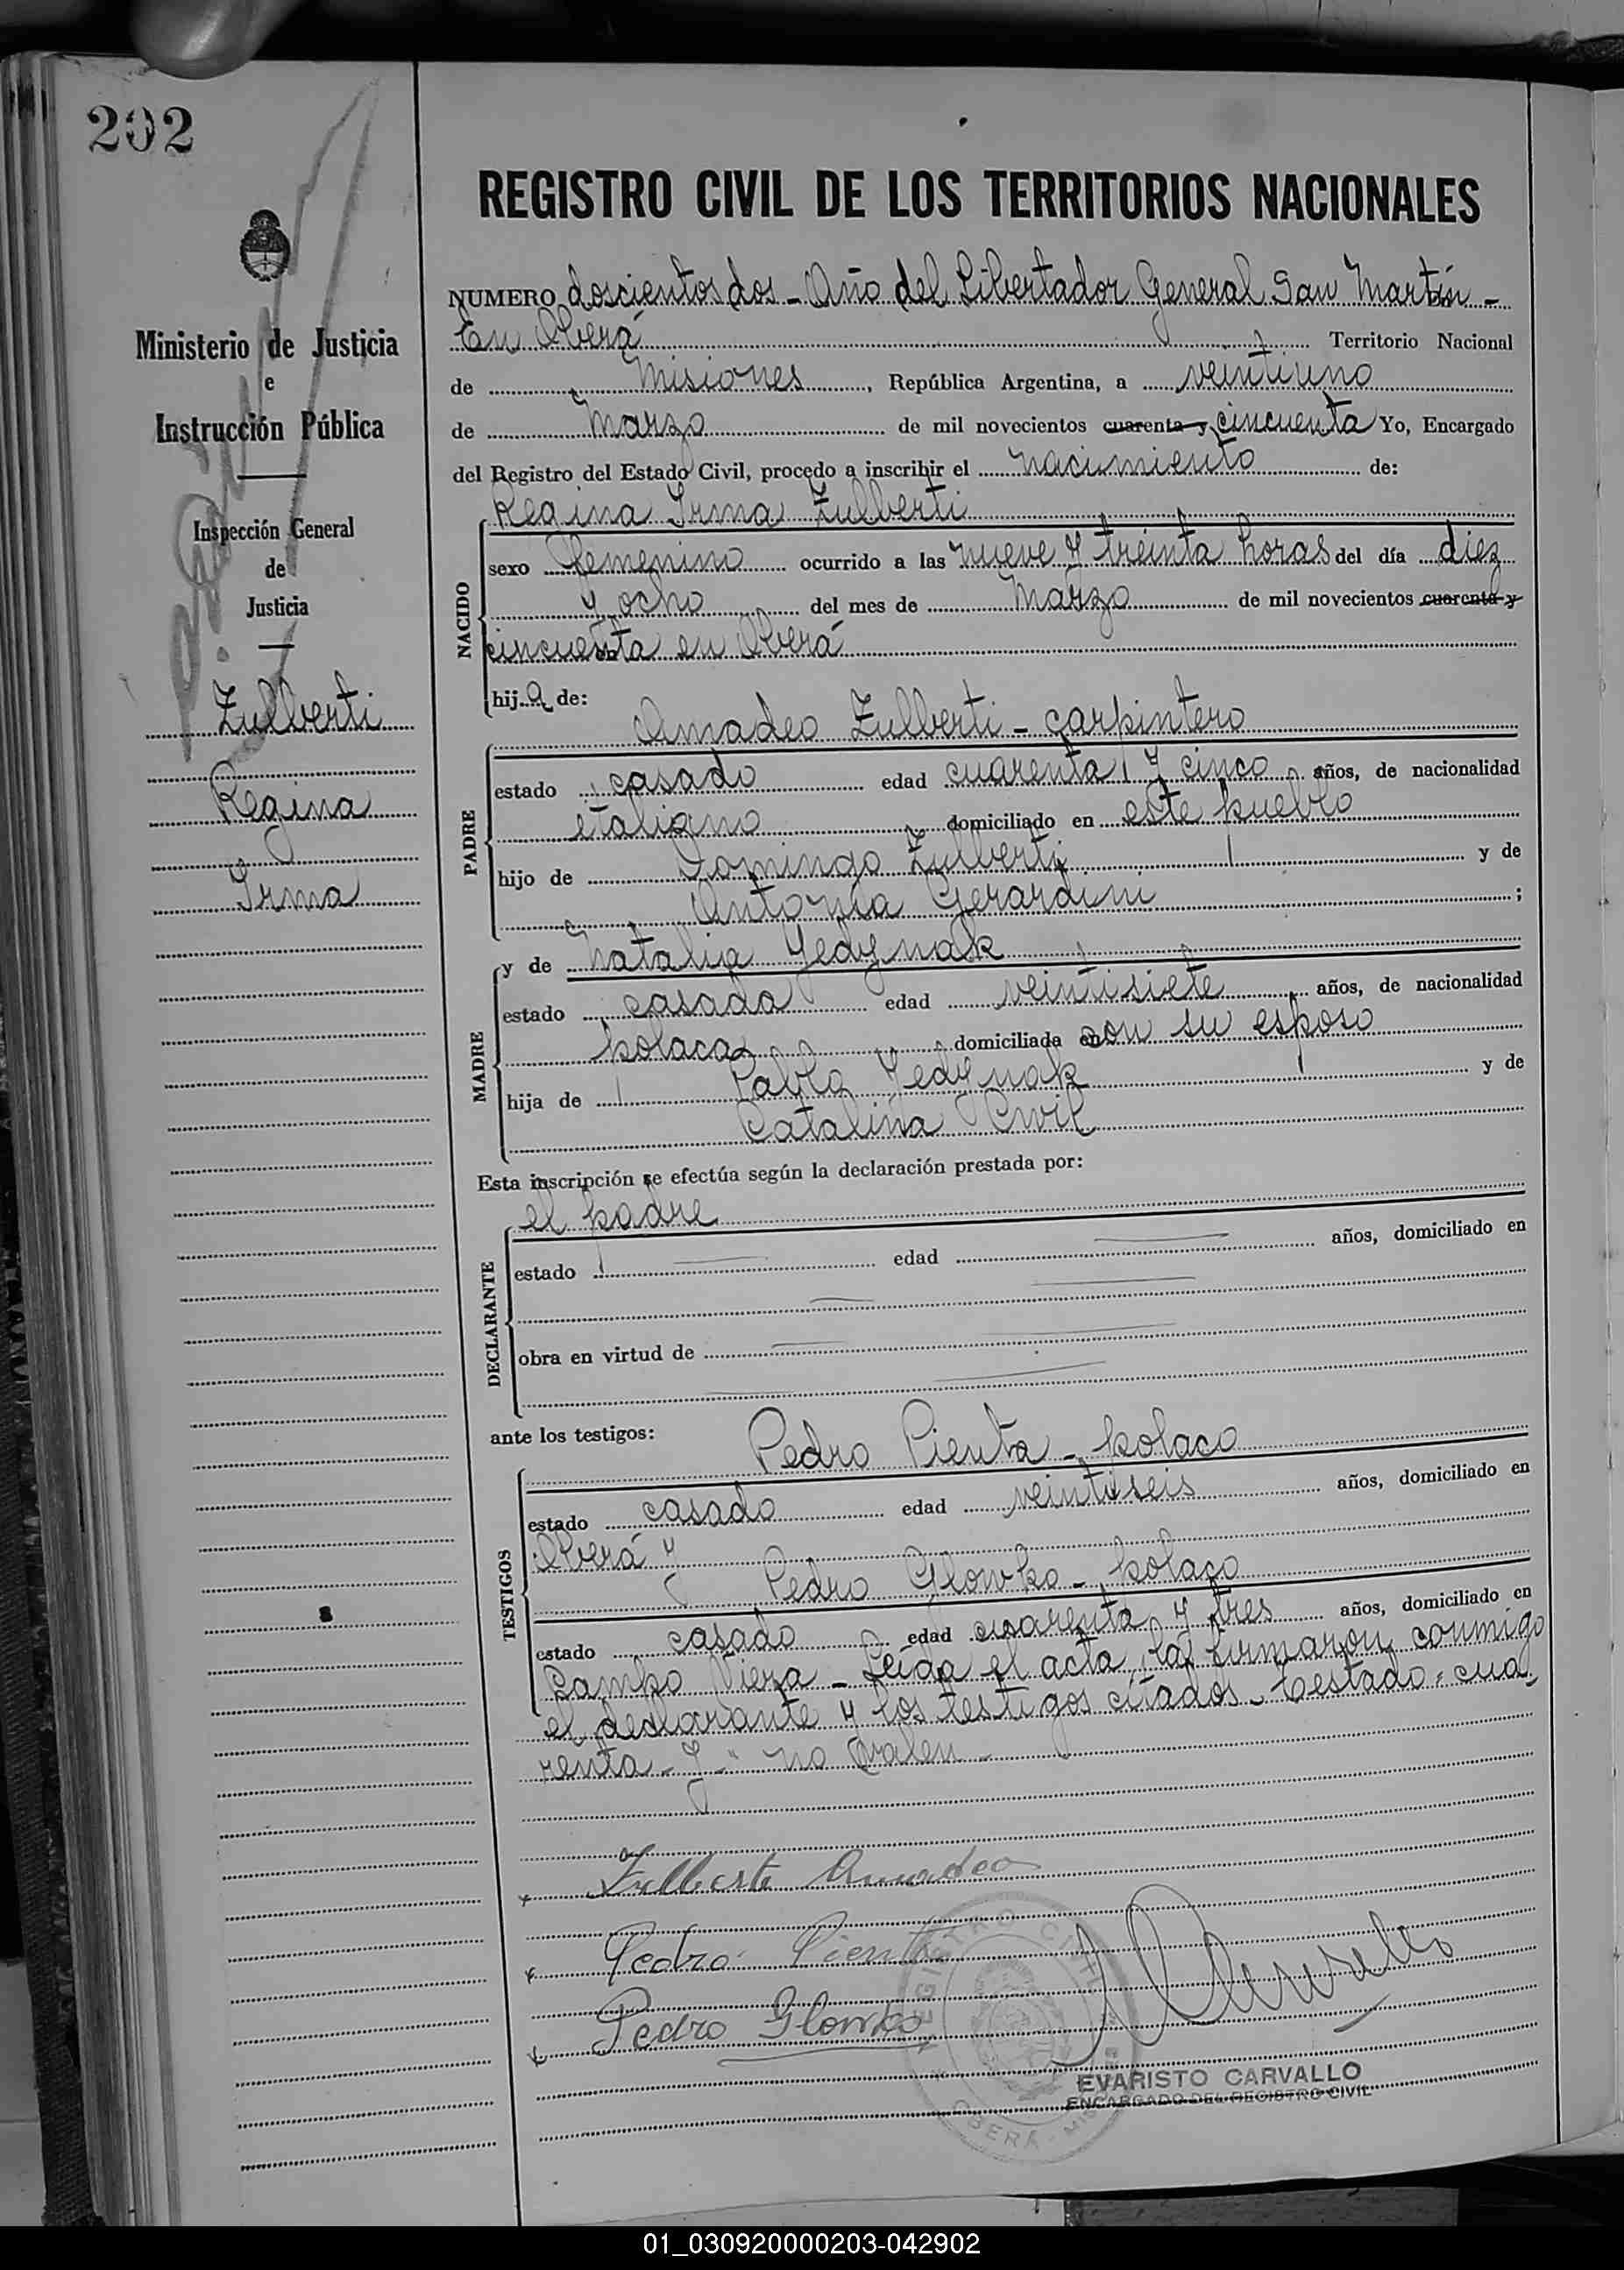 202
Ministerio de Justicia
e
Instrucción Pública
Inspección General
de
Justicia
Zulberti
Regina
Irma
REGISTRO CIVIL DE LOS TERRITORIOS NACIONALES
NUMERO doscientos dos - Año del Libertador General San Martín -
En Oberá Territorio Nacional
de Misiones, República Argentina, a veintiuno
de Marzo de mil novecientos cuarenta y cincuenta Yo, Encargado
del Registro del Estado Civil, procedo a inscribir el nacimiento de:
Regina Irma Zulberti
NACIDO
sexo femenino ocurrido a las nueve y treinta horas del día diez
y ocho del mes de Marzo de mil novecientos cuarenta y
cincuenta en Oberá
hija de:
Amadeo Zulberti - carpintero
PADRE
estado casado edad cuarenta y cinco años, de nacionalidad
italiano domiciliado en este pueblo
hijo de Domingo Zulberti y de
Antonia Gerardini ;
y de Natalia Yedynak
MADRE
estado casada edad veintisiete años, de nacionalidad
polaca domiciliada en con su esposo
hija de Pablo Yedynak y de
Catalina Cwil
Esta inscripción se efectúa según la declaración prestada por:
el padre
DECLARANTE
estado edad años, domiciliado en
obra en virtud de
ante los testigos:
Pedro Pienta - polaco
TESTIGOS
estado casado edad veintiseis años, domiciliado en
Oberá y
Pedro Glowko - polaco
estado casado edad cuarenta y tres años, domiciliado en
Campo Viera - Leída el acta, la firmaron conmigo
el declarante y los testigos citados - Testado: cua
renta - y - " no valen -
Zulberti Amadeo
Pedro Pienta
Pedro Glowko
REGISTRO CIVIL
OBERÁ - MIS
EVARISTO CARVALLO
ENCARGADO DEL REGISTRO CIVIL
01_030920000203-042902